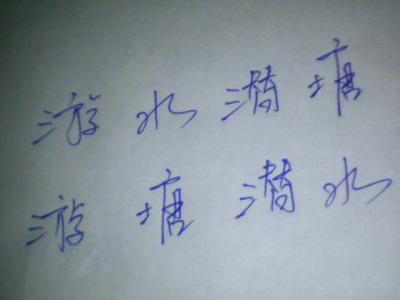 游水潜塘
游塘潜水